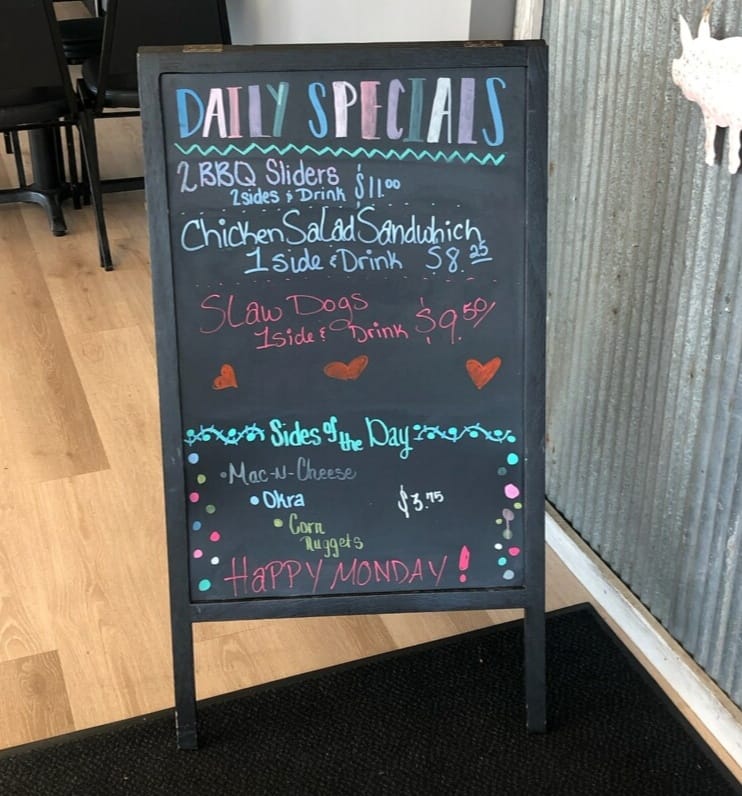 DAILY SPECIALS
2 BBQ Sliders
2sides & Drink $11.00
Chicken Salad Sandwhich
1 Side & Drink $8.25
Slaw Dogs
1side & Drink $9.50/
Sides of the Day
•Mac-N-Cheese
•Okra $3.75
•Corn
Nuggets
HAPPY MONDAY!